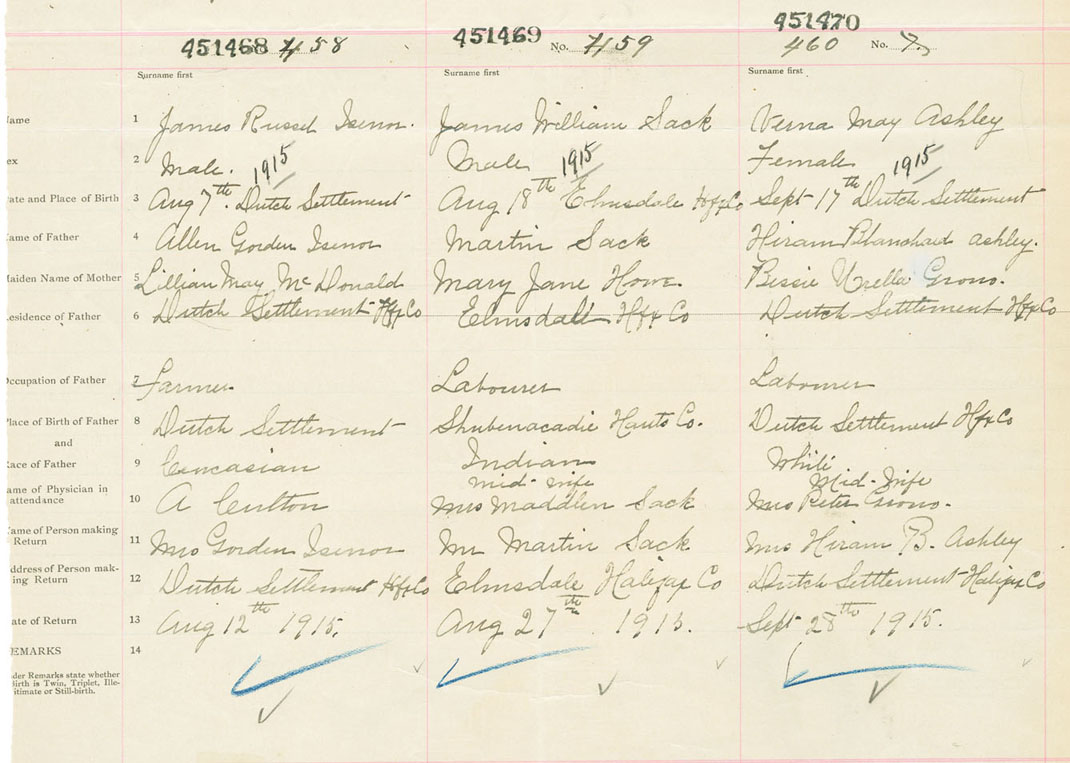 451468 458
451469 No. 459
451470
460 No. 7.
Surname first
Surname first
Surname first
ame 1 James Russel Isenor. James William Sack Verna May Ashley
ex 2 Male. 1915 Male 1915 Female 1915
ate and Place of Birth 3 Aug 7th. Dutch Settlement Aug 18th Elmsdale Hfx Co Sept 17th Dutch Settlement
ame of Father 4 Allen Gorden Isenor Martin Sack Hiram Blanchard Ashley.
aiden Name of Mother 5 Lillian May McDonald Mary Jane Howe Bessie Grono.
esidence of Father 6 Dutch Settlement Hfx Co Elmsdale Hfx Co Dutch Settlement Hfx Co
ccupation of Father 7 Farmer Labourer Labourer
lace of Birth of Father 8 Dutch Settlement Shubenacadie Hants Co. Dutch Settlement Hfx Co
and
ace of Father 9 Caucasian Indian White
ame of Physician in mid-wife Mid-Wife
attendance 10 A Mrs Maddlen Sack Mrs Peter Grono.
ame of Person making
Return 11 Mrs Gorden Isenor Mr Martin Sack Mrs Hiram B. Ashley
ddress of Person mak-
ing Return 12 Dutch Settlement Hfx Co Elmsdale Halifax Co Dutch Settlement Halifax Co
ate of Return 13 Aug 12th 1915. Aug 27th 1915. Sept 28th 1915.
EMARKS 14
der Remarks state whether
irth is Twin, Triplet, Ille-
itimate or Still-birth.